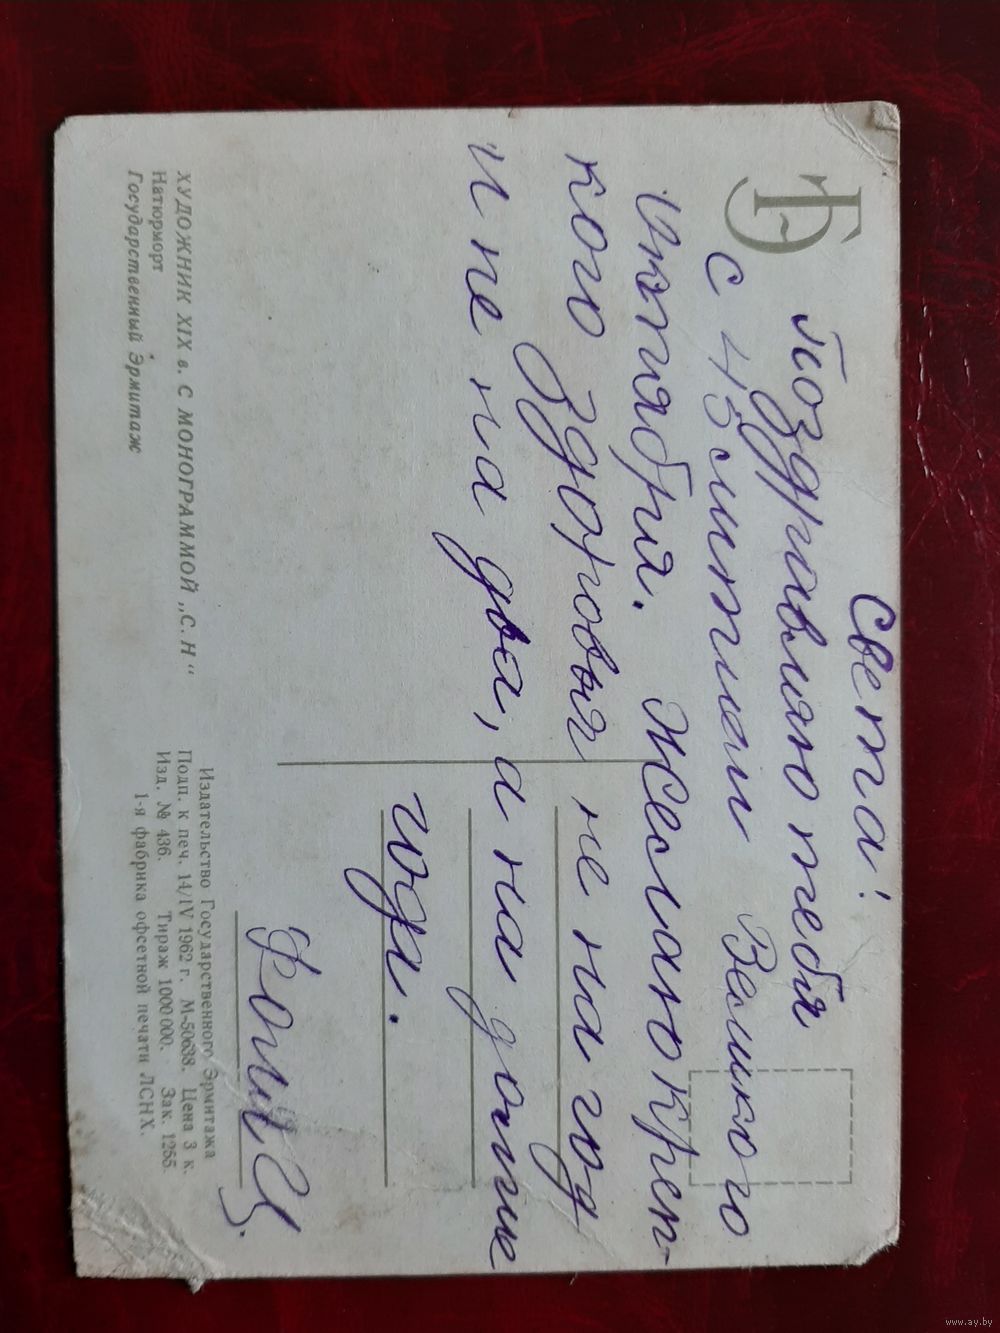 ГЭ
Света!
Поздравляю тебя
с 45 летием Великого
октября. Желаю креп-
кого здоровья не на год
и не на два, а на долгие
года.
ХУДОЖНИК XIX в. С МОНОГРАММОЙ „С. Н“
Натюрморт
Государственный Эрмитаж
Издательство Государственного Эрмитажа
Подп. к печ. 14/IV 1962 г. М-50638. Цена 3 к.
Изд. № 436. Тираж 1000 000. Зак. 1255.
1-я фабрика офсетной печати ЛСНХ.
www.ay.by